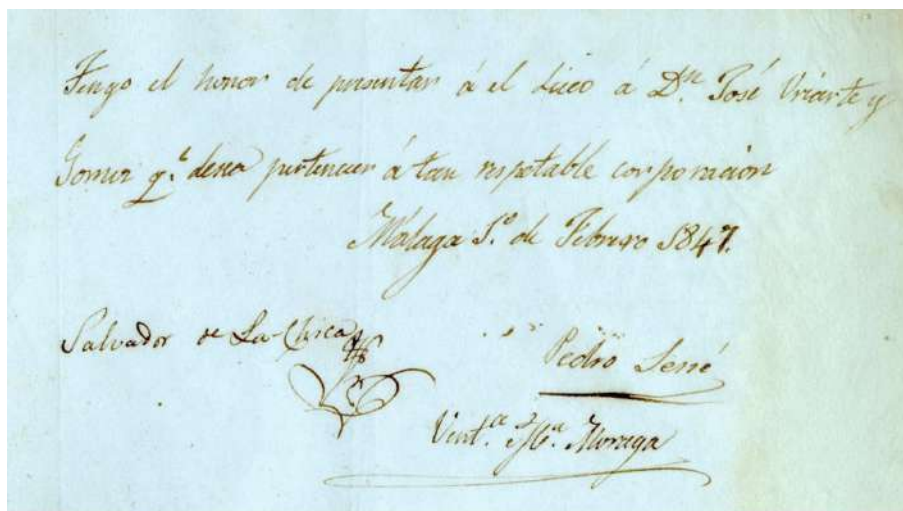 Tengo el honor de presentar á el Liceo á Dn. José Uriarte y
Gomez q.e desea pertenecer á tan respetable corporacion
Málaga 1.º de Febrero 1847.
Salvador de La-Chica
Pedro
M.a Moraga